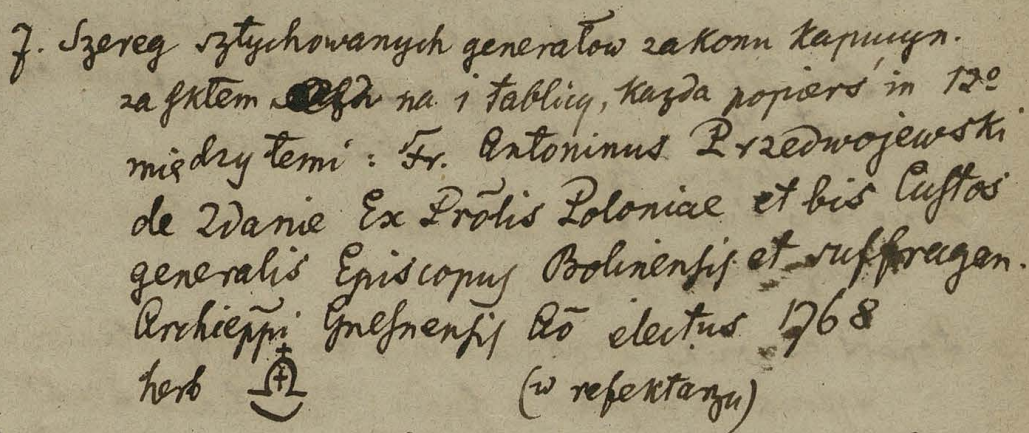 7. Szereg sztychowanych generałow zakonu Kapucyn.
za szkłem na 1 tablicy, każda popierś in 12º
między temi : Fr. Antoninus Przedwojewski
de Zdanie Ex Prõlis Poloniae et bis Custos
generalis Episcopus Bolinensis et suffragan.
Archieppi Gnesnensis Aõ electus 1768
herb (w refektarzu)